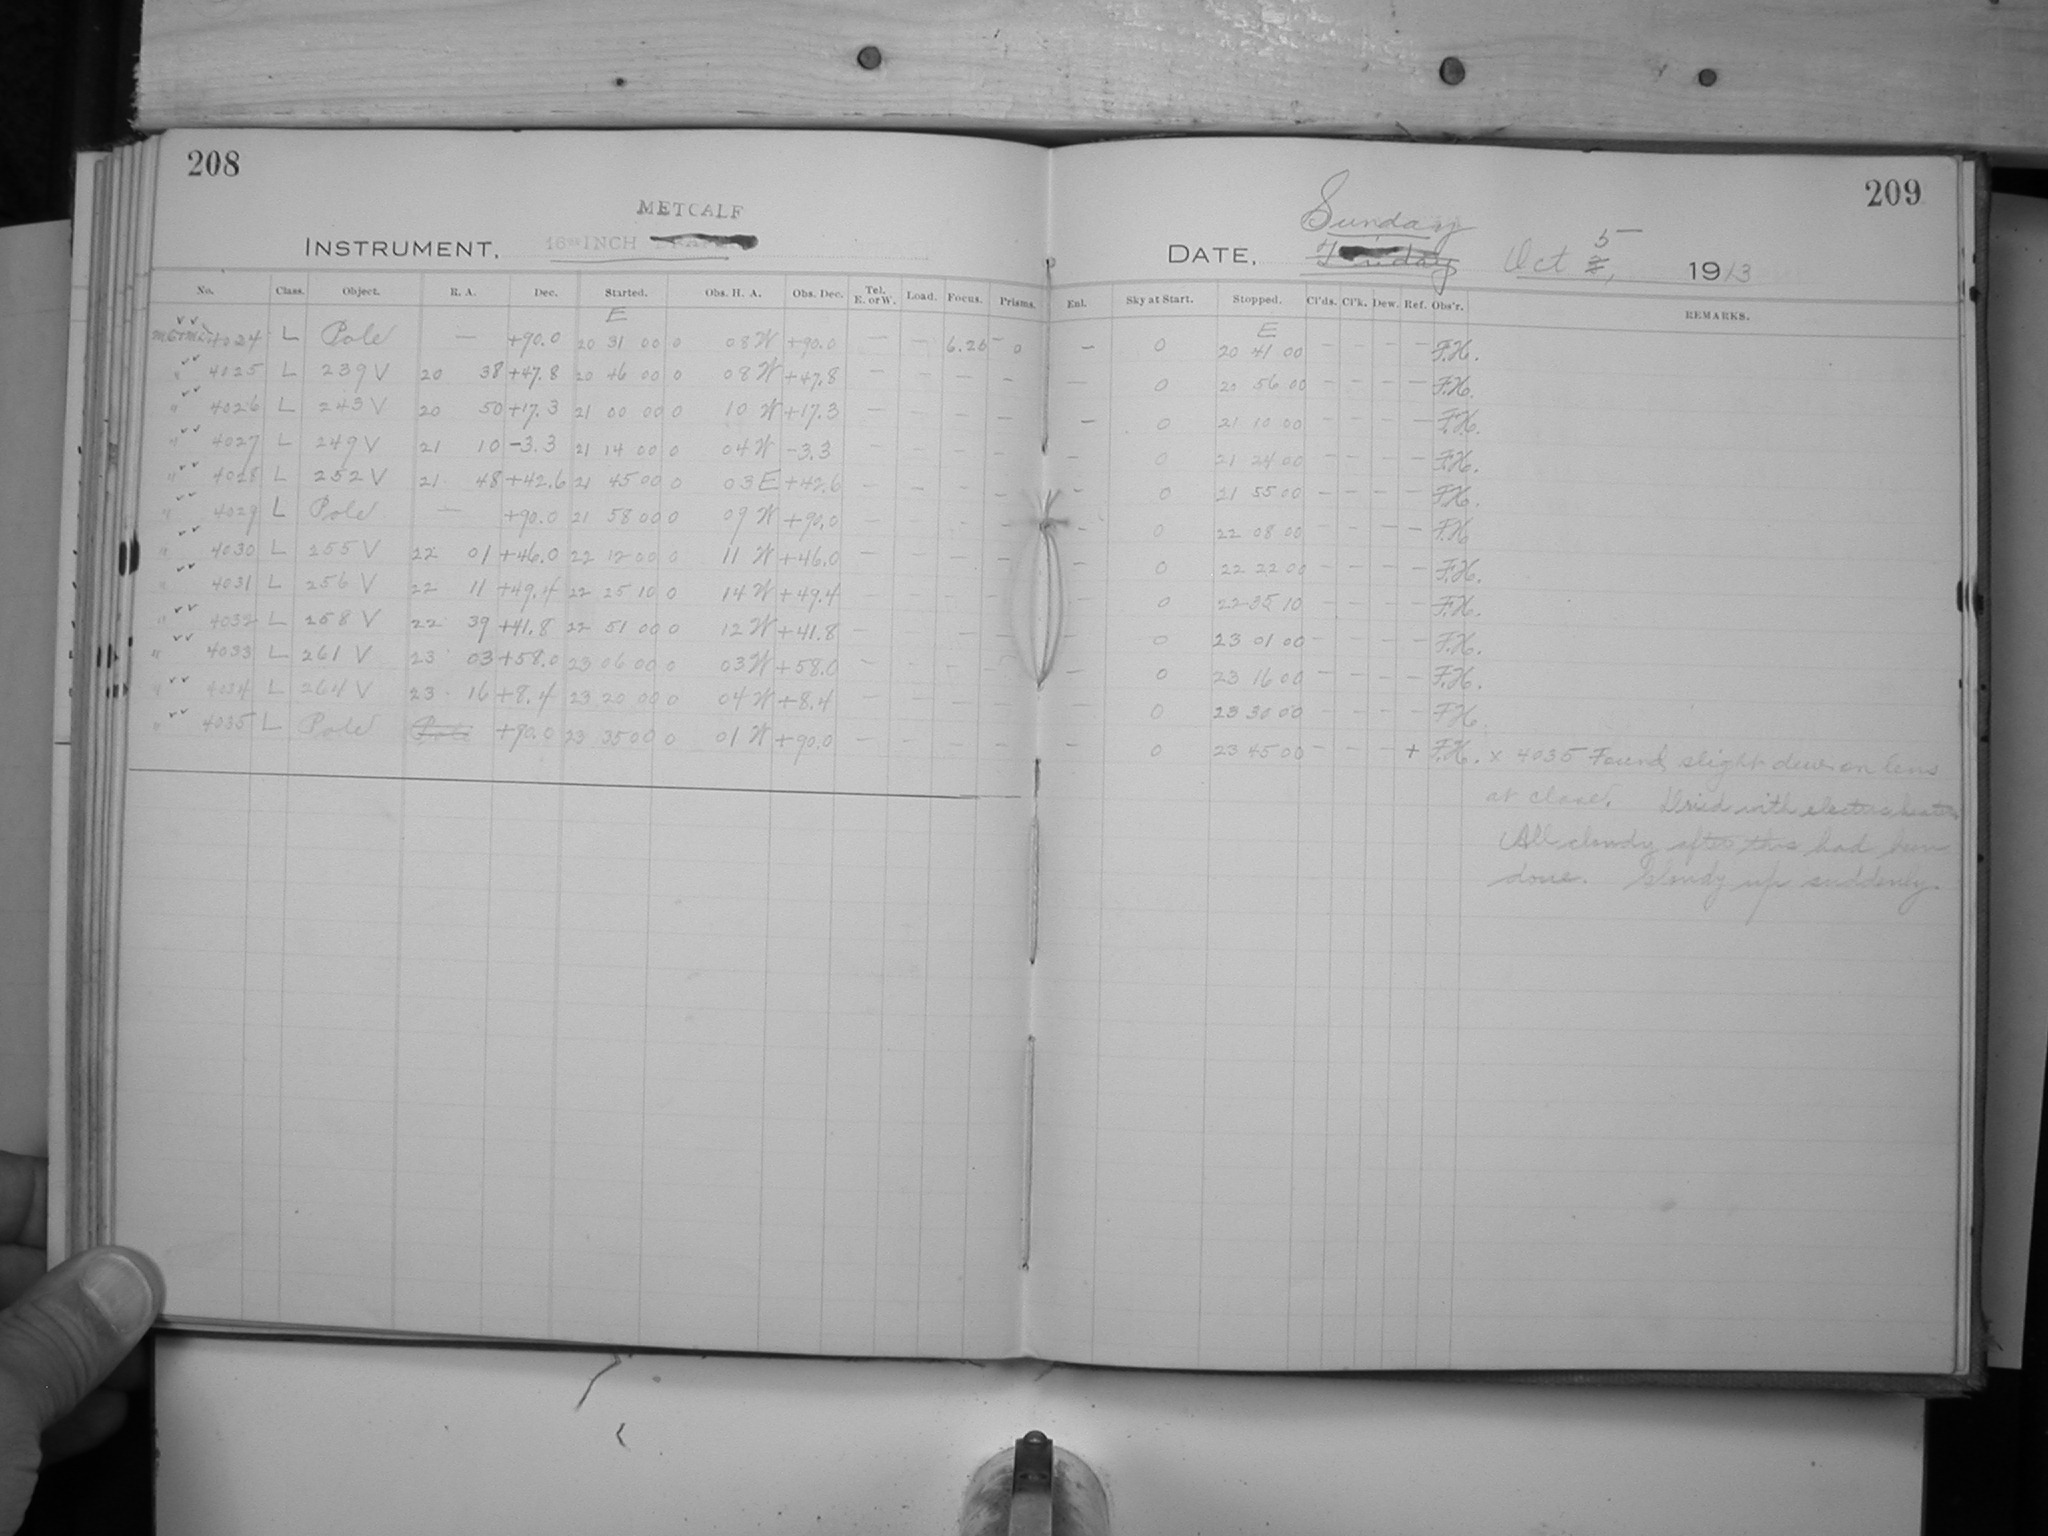 208
METCALF
INSTRUMENT, 16 INCH
No. Class. Object. R. A. Dec. Started. Obs. H. A. Obs. Dec. Tel. E. or W. Load. Focus. Prisms.
E
4024 L Pole — +90.0 20 31 00 0 08 W +90.0 — — 6.26 — 0
" 4025 L 239 V 20 38 +47.8 20 46 00 0 08 W +47.8 — — — —
" 4026 L 243 V 20 50 +17.3 21 00 00 0 10 W +17.3 — — — —
" 4027 L 249 V 21 10 -3.3 21 14 00 0 04 W -3.3 — — — —
" 4028 L 252 V 21 48 +42.6 21 45 00 0 03 E +42.6 — — — —
" 4029 L Pole — +90.0 21 58 00 0 09 W +90.0 — — — —
" 4030 L 255 V 22 01 +46.0 22 12 00 0 11 W +46.0 — — — —
" 4031 L 256 V 22 11 +49.4 22 25 10 0 14 W +49.4 — — — —
" 4032 L 258 V 22 39 +41.8 22 51 00 0 12 W +41.8 — — — —
" 4033 L 261 V 23 03 +58.0 23 06 00 0 03 W +58.0 — — — —
" 4034 L 264 V 23 16 +8.4 23 20 00 0 04 W +8.4 — — — —
" 4035 L Pole Pole +90.0 23 35 00 0 01 W +90.0 — — — —
209
Sunday
DATE, Friday Oct 5, 1913
Enl. Sky at Start. Stopped. Cl'ds. Cl'k. Dew. Ref. Obs'r. REMARKS.
E
— 0 20 41 00 — — — — F.H.
— 0 20 56 00 — — — — F.H.
— 0 21 10 00 — — — — F.H.
— 0 21 24 00 — — — — F.H.
— 0 21 55 00 — — — — F.H.
— 0 22 08 00 — — — — F.H
— 0 22 22 00 — — — — F.H.
— 0 22 35 10 — — — — F.H.
— 0 23 01 00 — — — — F.H.
— 0 23 16 00 — — — — F.H.
0 23 30 00 — — — — F.H.
— 0 23 45 00 — — — + F.H. x 4035 Found slight dew on lens
at close. Dried with electric heater
All cloudy after this had been
done. Cloudy up suddenly.